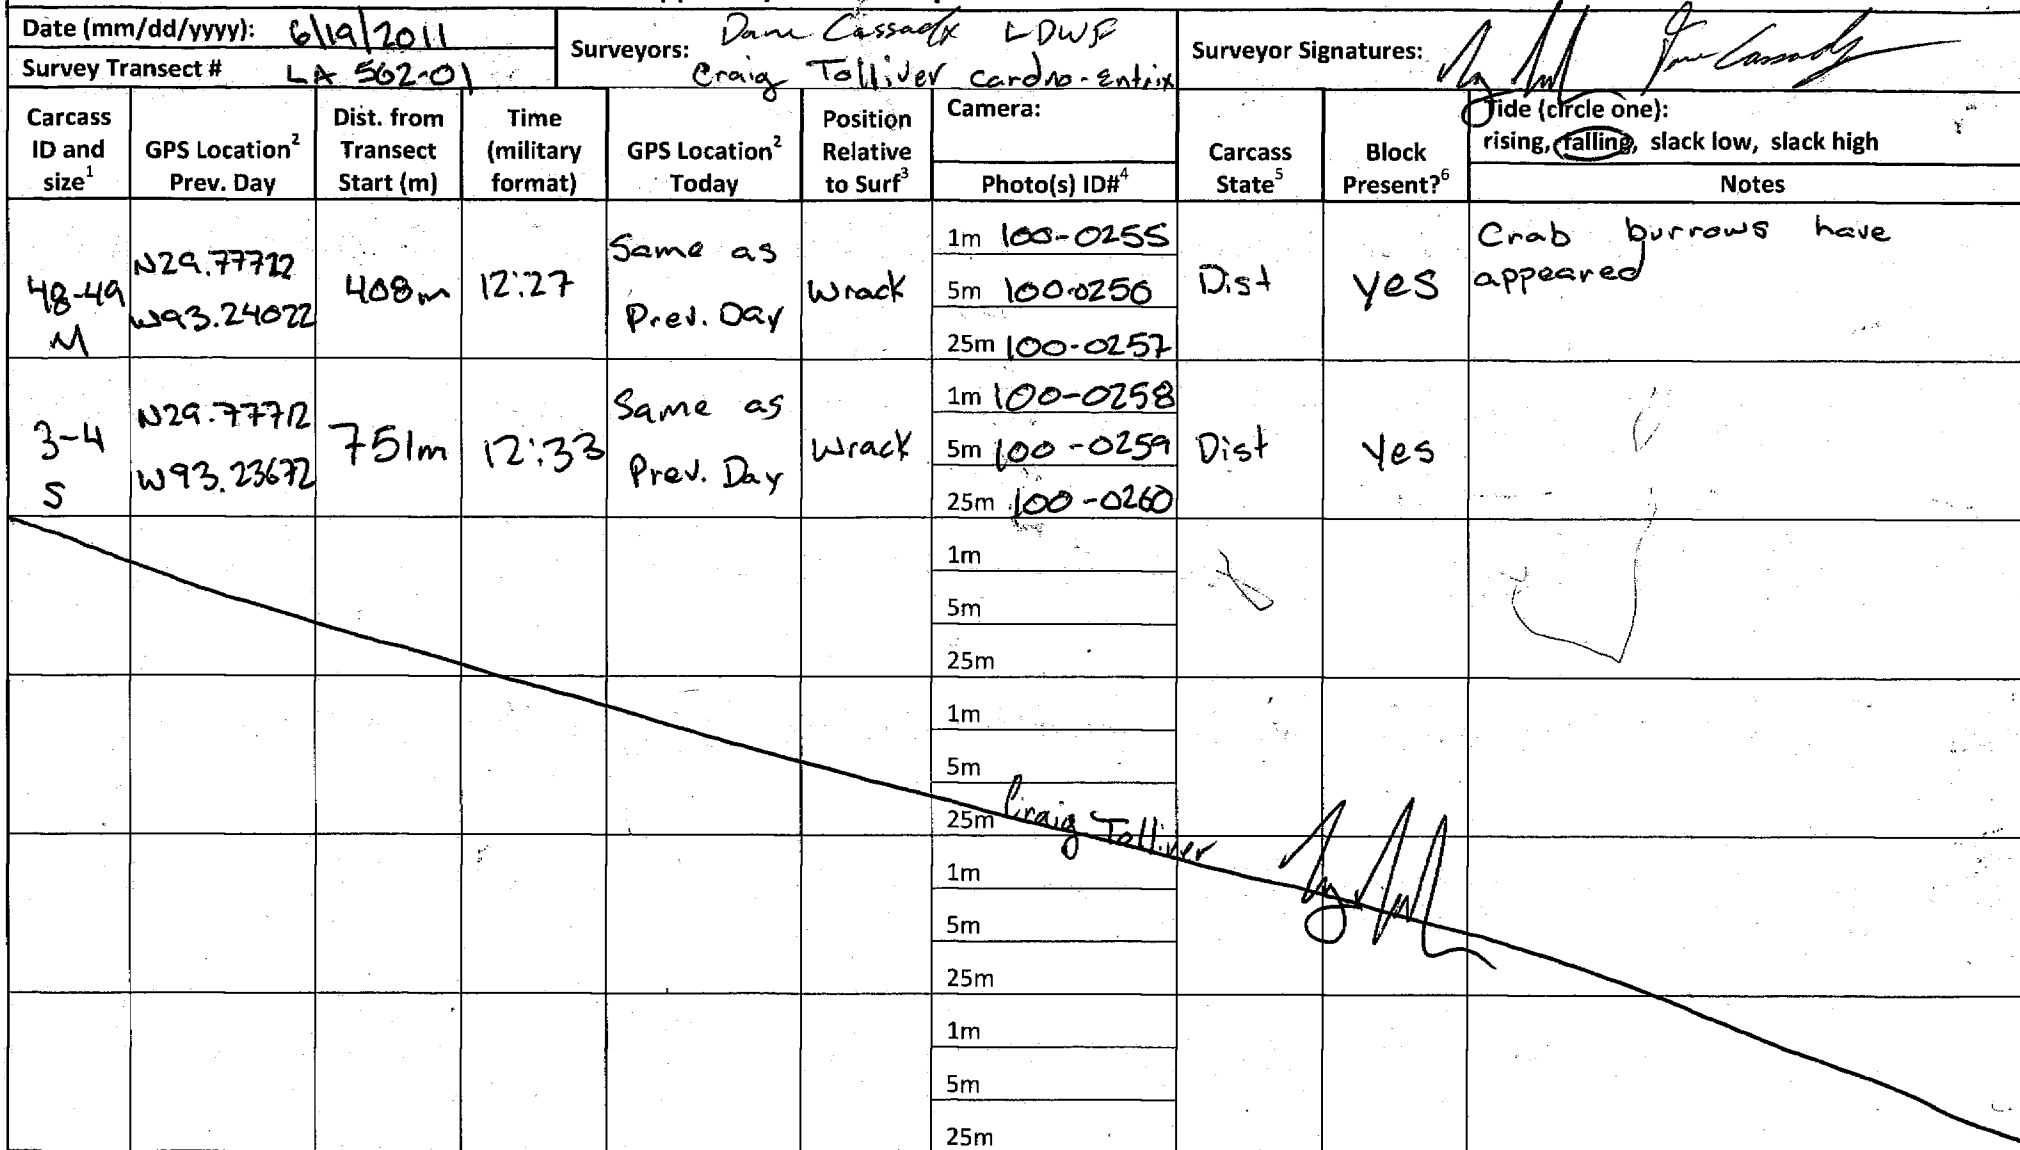 Date (mm/dd/yyyy): 6/19/2011
Survey Transect # LA 562-01
Surveyors: Dane Cassady LDWF
Craig Tolliver Cardno-Entrix
Surveyor Signatures:
Carcass ID and size1
GPS Location2 Prev. Day
Dist. from Transect Start (m)
Time (military format)
GPS Location2 Today
Position Relative to Surf3
Camera:
Photo(s) ID#4
Carcass State5
Block Present?6
Tide (circle one):
rising, falling, slack low, slack high
Notes
48-49
M
N29.77722
W93.24022
408m
12:27
Same as
Prev. Day
Wrack
1m 100-0255
5m 100-0256
25m 100-0257
Dist
yes
Crab burrows have
appeared
3-4
S
N29.77712
W93.23672
751m
12:33
Same as
Prev. Day
Wrack
1m 100-0258
5m 100-0259
25m 100-0260
Dist
Yes
1m
5m
25m
1m
5m
25m Craig Tolliver
1m
5m
25m
1m
5m
25m